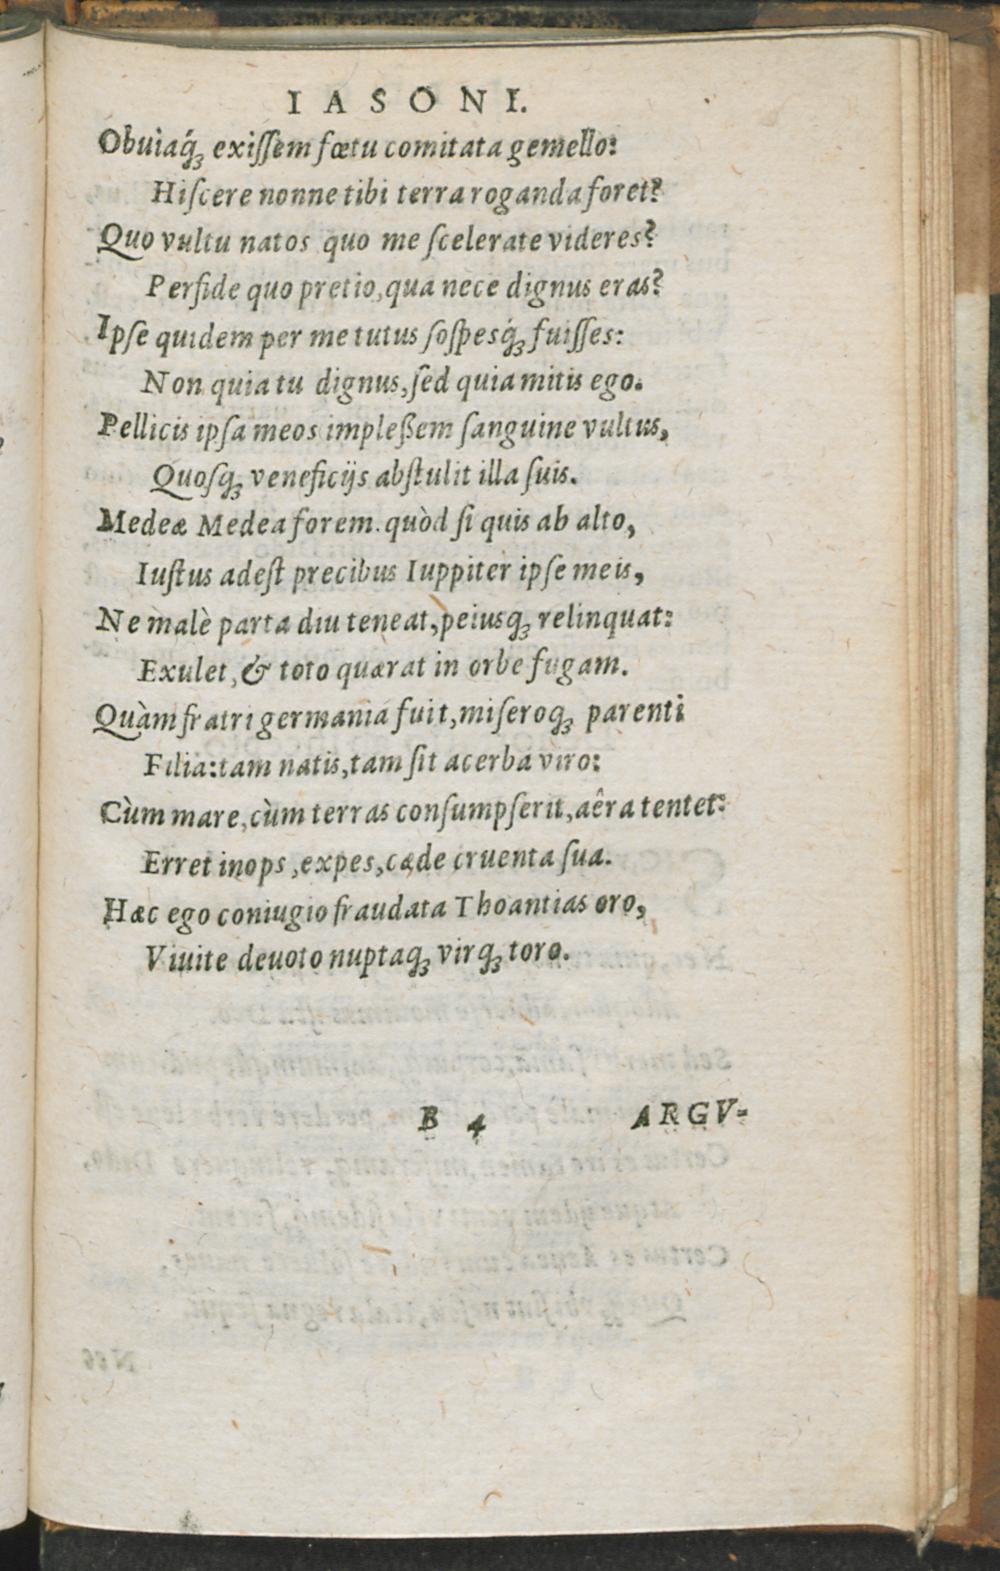 IASONI.
Obuiaq́ꝫ exiſſem fœtu comitata gemello:
Hiſcere nonne tibi terra roganda foret?
Quo vultu natos quo me ſcelerate videres?
Perfide quo pretio, qua nece dignus eras?
Ipſe quidem per me tutus ſoſpesq́ꝫ fuiſſes:
Non quia tu dignus, ſed quia mitis ego.
Pellicis ipſa meos impleßem ſanguine vultus,
Quoſqꝫ veneficijs abſtulit illa ſuis.
Medeæ Medea forem. quòd ſi quis ab alto,
Iuſtus adeſt precibus Iuppiter ipſe meis,
Ne malè parta diu teneat, peiusqꝫ relinquat:
Exulet, & toto quærat in orbe fugam.
Quàm fratri germania fuit, miſeroqꝫ parenti
Filia: tam natis, tam ſit acerba viro:
Cùm mare, cùm terras conſumpſerit, aêra tentet:
Erret inops, expes, cæde cruenta ſua.
Hæc ego coniugio fraudata Thoantias oro,
Viuite deuoto nuptaqꝫ virqꝫ toro.
B 4 ARGV-